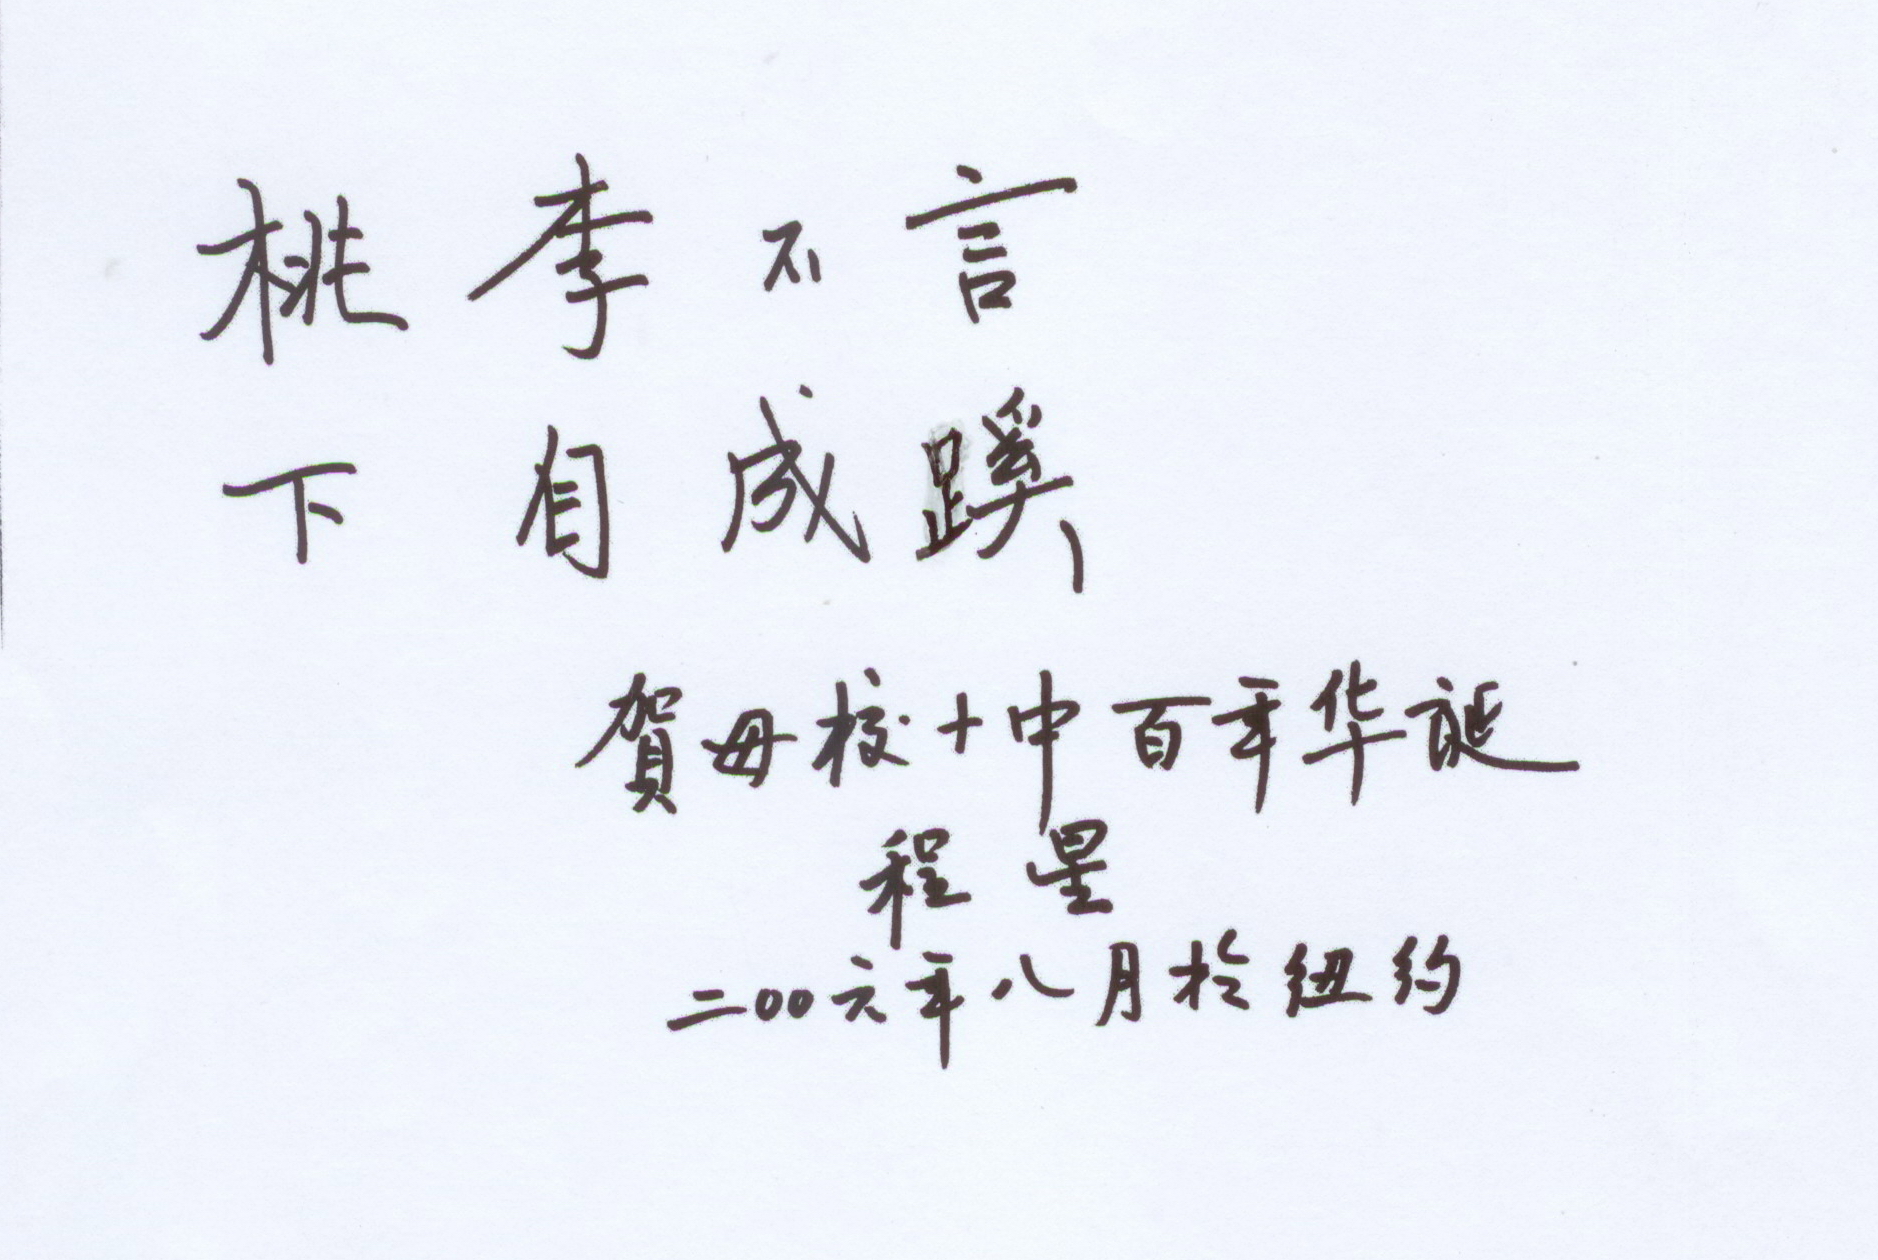 桃李不言
下自成蹊
賀母校十中百年华誕
程星
二00六年八月於纽约